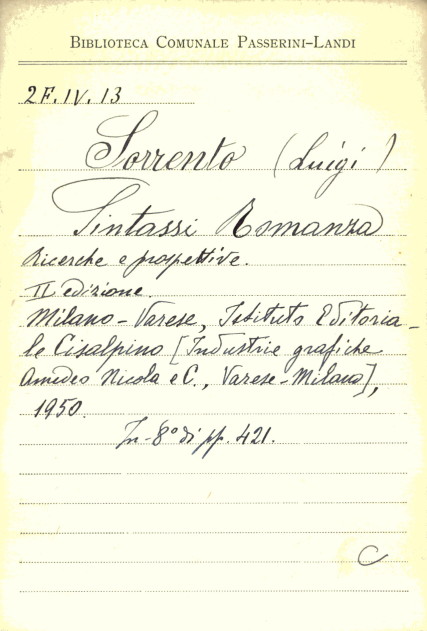 BIBLIOTECA COMUNALE PASSERINI-LANDI
2F.IV.13
Sorrento (Luigi)
Sintassi Romanza
Ricerche e prospettive.
II edizione.
Milano-Varese, Istituto Editoria-
le Cisalpino [Industrie grafiche
Amedeo Nicola e C., Varese-Milano],
1950.
In-8° di pp. 421.
C